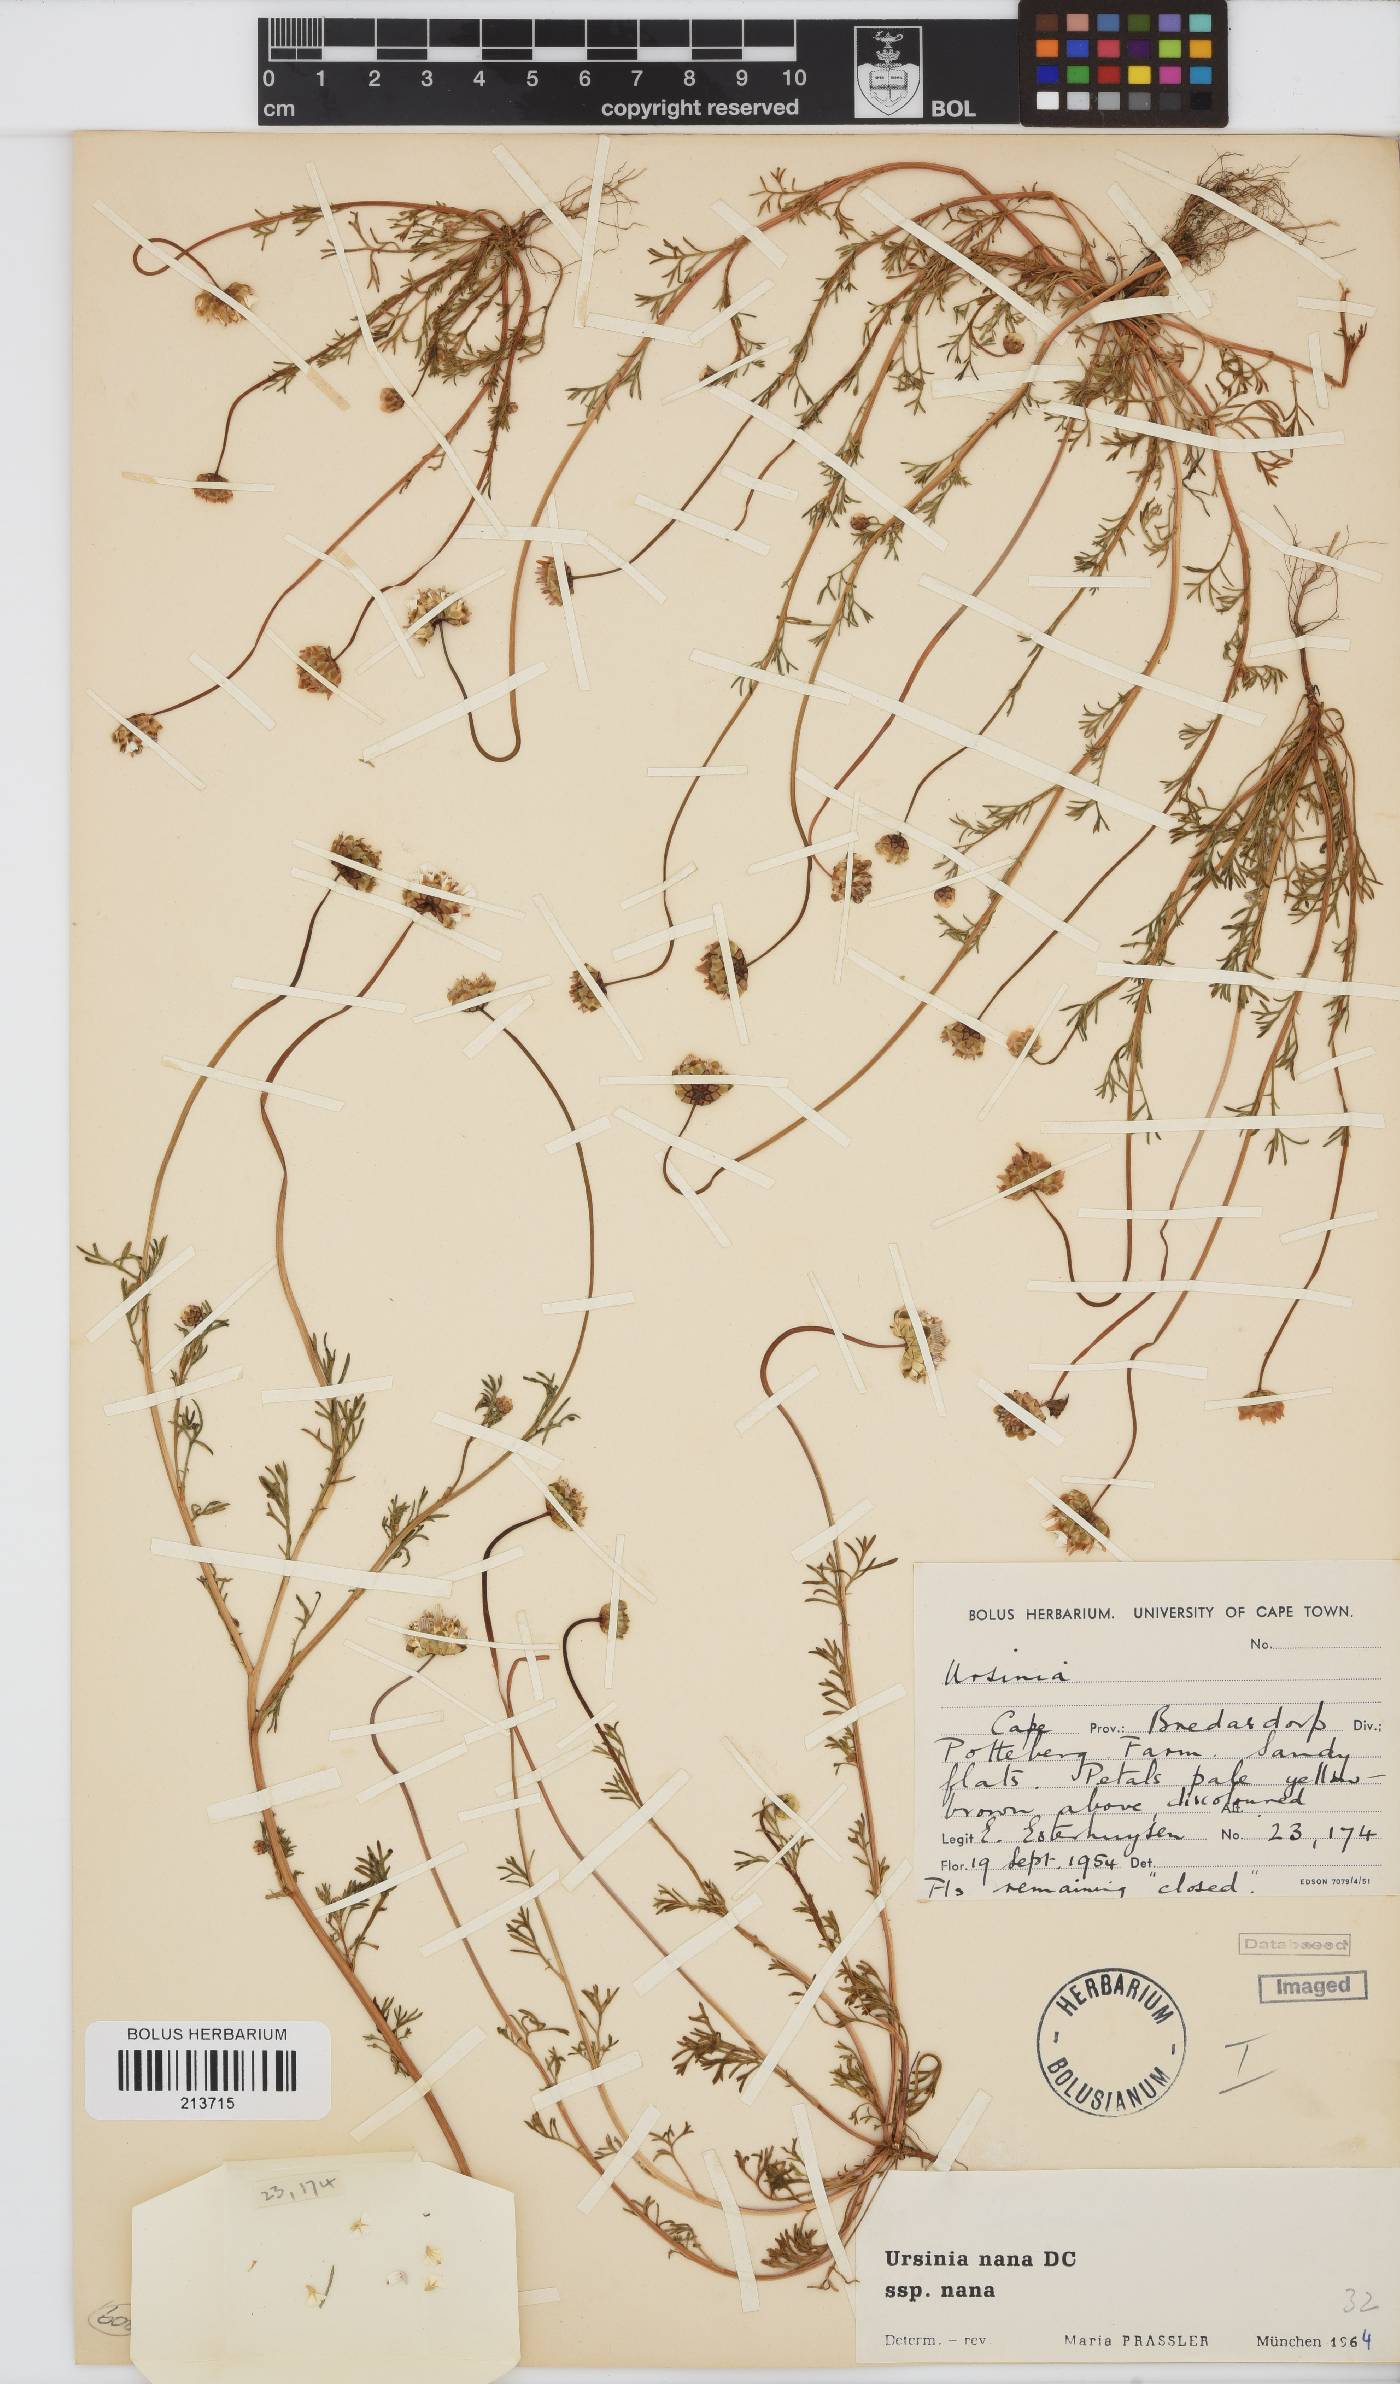 0 1 2 3 4 5 6 7 8 9 10
cm copyright reserved BOL
BOLUS HERBARIUM. UNIVERSITY OF CAPE TOWN.
No.
Ursinia
Cape Prov.: Bredasdorp Div.;
Potteberg Farm. Sandy
flats. Petals pale yellow-
brown above, discoloured
Alt.
Legit E. Esterhuysen No. 23,174
Flor. 19 Sept. 1954 Det.
Fls remaining "closed".
EDSON 7079/4/51
Databased
Imaged
HERBARIUM
BOLUSIANUM
I
BOLUS HERBARIUM
213715
23,174
Ursinia nana DC
ssp. nana
32
Determ. – rev. Maria PRASSLER München 1964